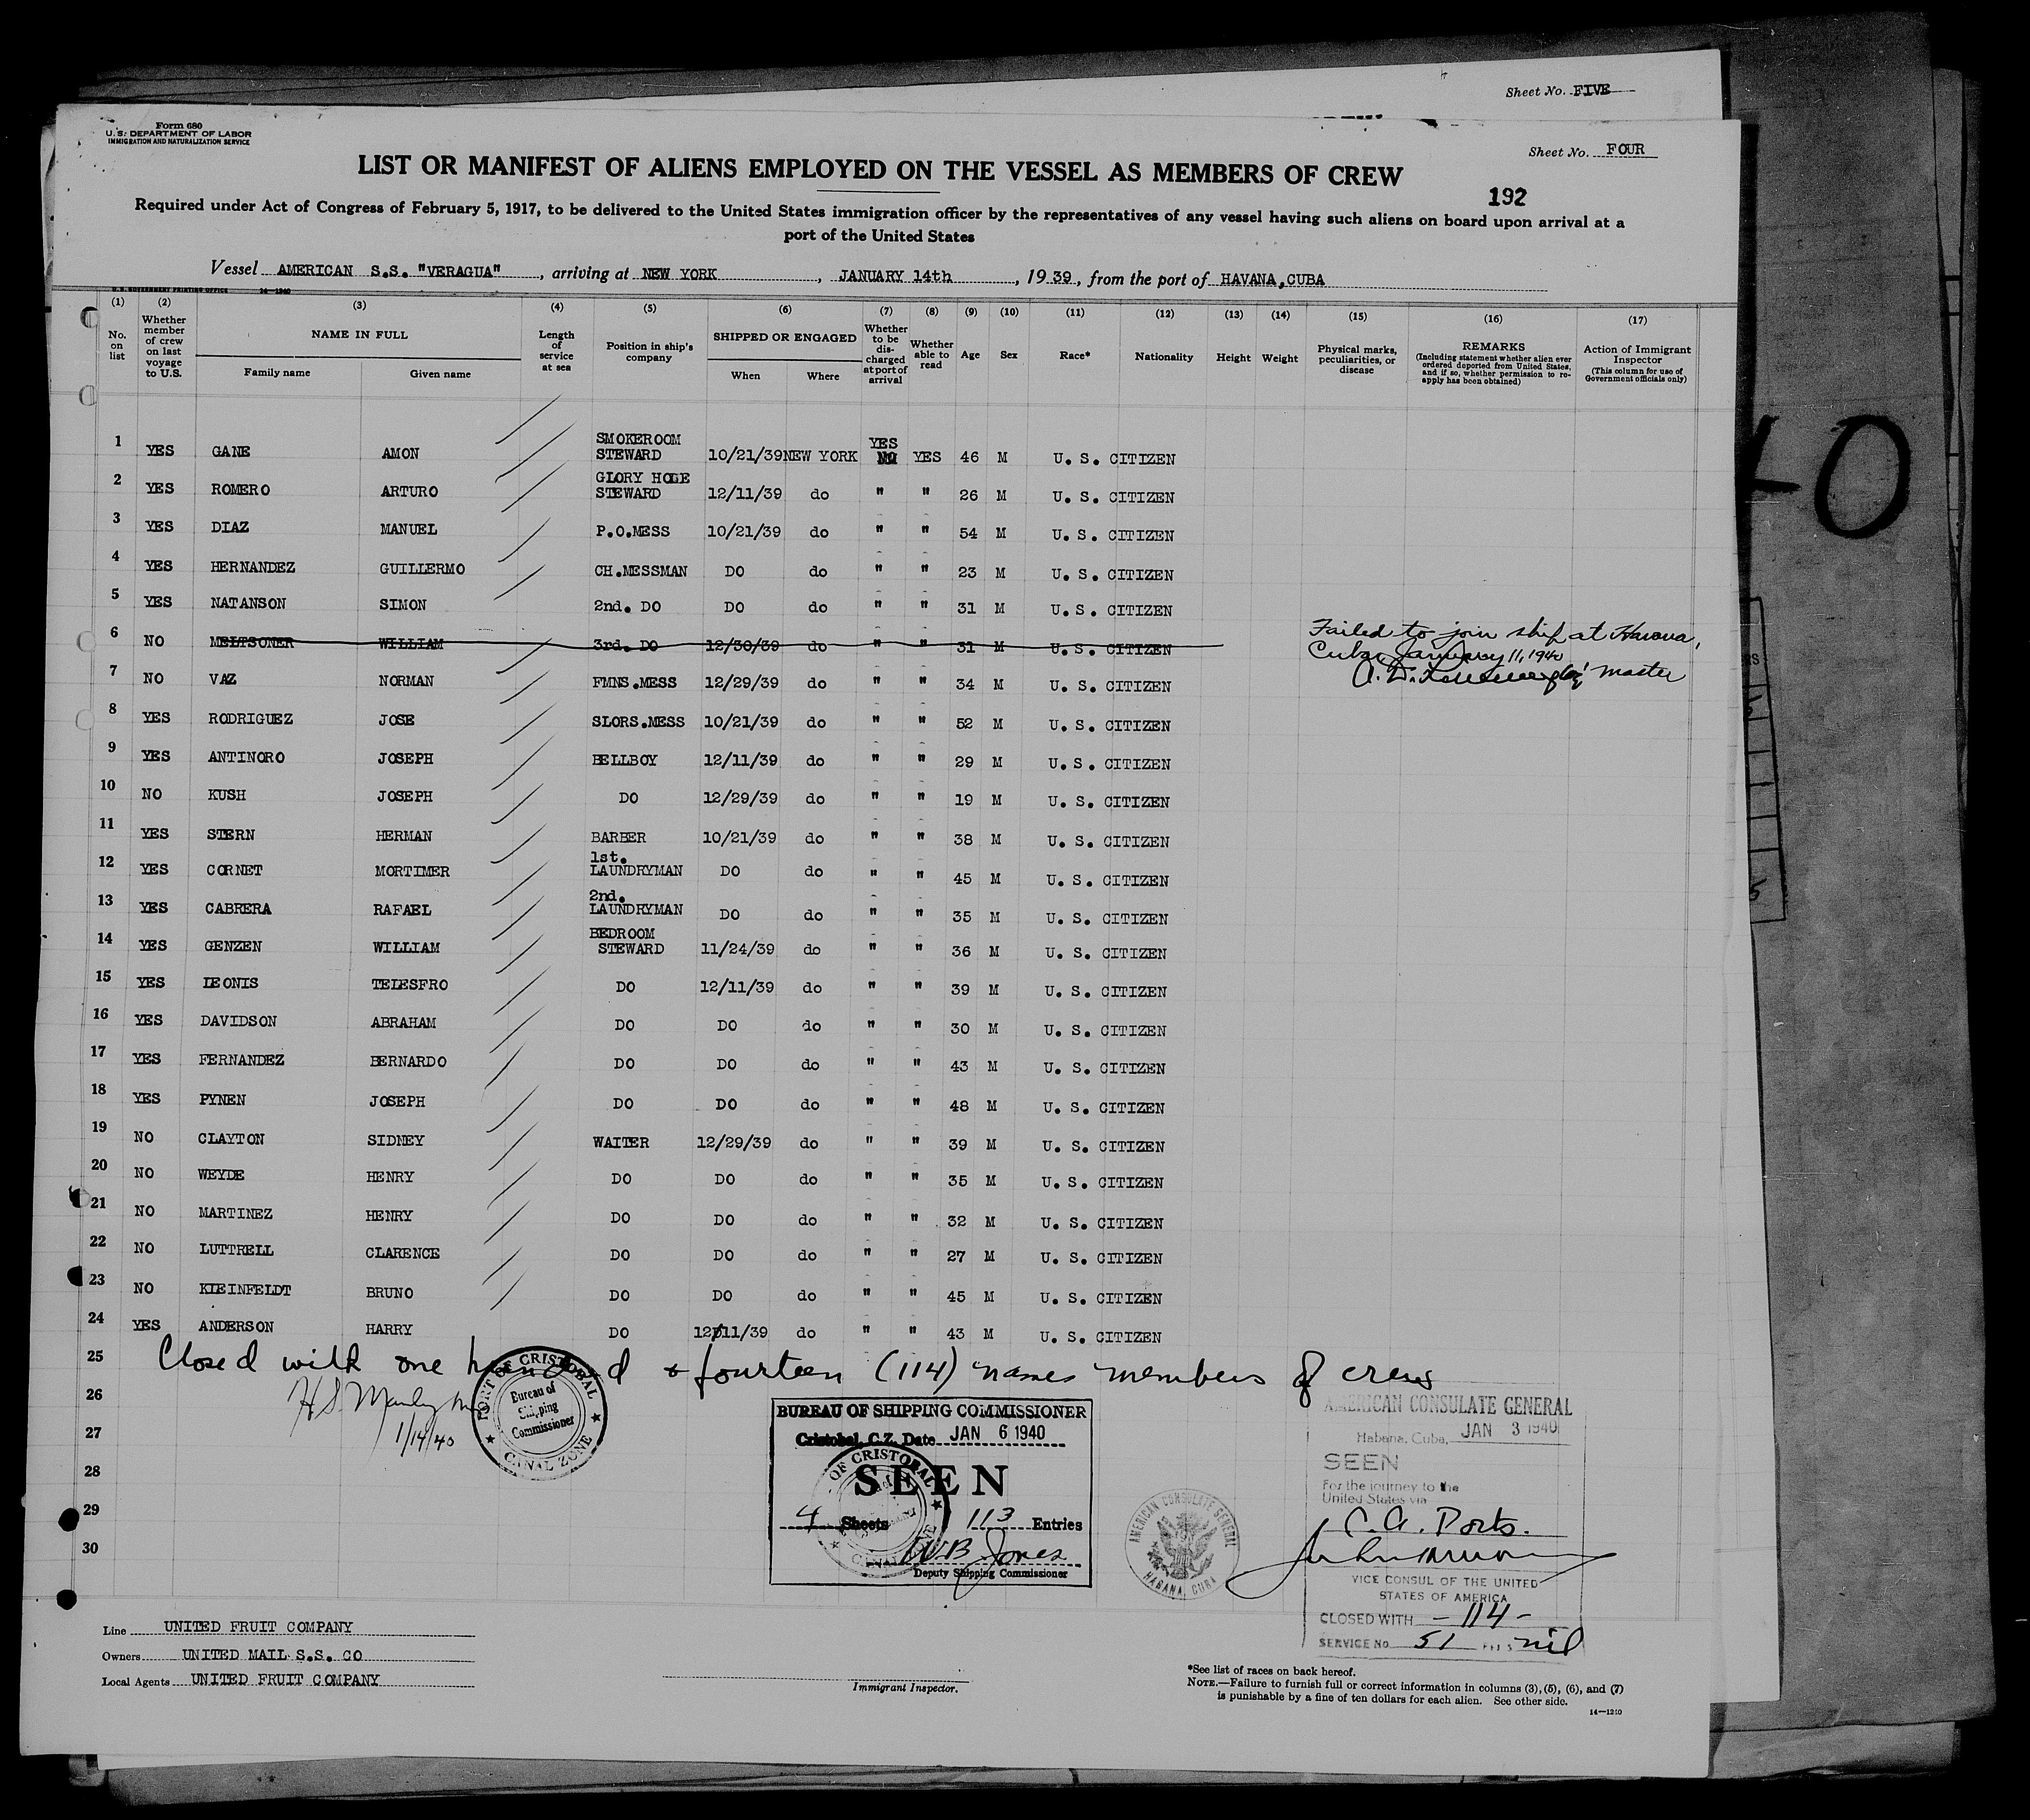 Sheet No. FIVE
Form 680
U. S. DEPARTMENT OF LABOR
IMMIGRATION AND NATURALIZATION SERVICE
Sheet No. FOUR
LIST OR MANIFEST OF ALIENS EMPLOYED ON THE VESSEL AS MEMBERS OF CREW
192
Required under Act of Congress of February 5, 1917, to be delivered to the United States immigration officer by the representatives of any vessel having such aliens on board upon arrival at a
port of the United States
Vessel AMERICAN S.S. "VERAGUA", arriving at NEW YORK, JANUARY 14th, 1939, from the port of HAVANA, CUBA
U. S. GOVERNMENT PRINTING OFFICE 14—1240
(1) (2) (3) (4) (5) (6) (7) (8) (9) (10) (11) (12) (13) (14) (15) (16) (17)
No. on list
Whether member of crew on last voyage to U.S.
NAME IN FULL
Family name Given name
Length of service at sea
Position in ship's company
SHIPPED OR ENGAGED
When Where
Whether to be discharged at port of arrival
Whether able to read
Age Sex Race* Nationality Height Weight
Physical marks, peculiarities, or disease
REMARKS
(Including statement whether alien ever ordered deported from United States, and if so, whether permission to reapply has been obtained)
Action of Immigrant Inspector
(This column for use of Government officials only)
1 YES GANE AMON SMOKEROOM STEWARD 10/21/39 NEW YORK YES NO YES 46 M U. S. CITIZEN
2 YES ROMERO ARTURO GLORY HOLE STEWARD 12/11/39 do " " 26 M U. S. CITIZEN
3 YES DIAZ MANUEL P.O.MESS 10/21/39 do " " 54 M U. S. CITIZEN
4 YES HERNANDEZ GUILLERMO CH.MESSMAN DO do " " 23 M U. S. CITIZEN
5 YES NATANSON SIMON 2nd. DO DO do " " 31 M U. S. CITIZEN
6 NO MELTSONER WILLIAM 3rd. DO 12/30/39 do " " 31 M U. S. CITIZEN
Failed to join ship at Havana,
Cuba, January 11, 1940
Master
7 NO VAZ NORMAN FMNS.MESS 12/29/39 do " " 34 M U. S. CITIZEN
8 YES RODRIGUEZ JOSE SLORS.MESS 10/21/39 do " " 52 M U. S. CITIZEN
9 YES ANTINORO JOSEPH BELLBOY 12/11/39 do " " 29 M U. S. CITIZEN
10 NO KUSH JOSEPH DO 12/29/39 do " " 19 M U. S. CITIZEN
11 YES STERN HERMAN BARBER 10/21/39 do " " 38 M U. S. CITIZEN
12 YES CORNET MORTIMER 1st. LAUNDRYMAN DO do " " 45 M U. S. CITIZEN
13 YES CABRERA RAFAEL 2nd. LAUNDRYMAN DO do " " 35 M U. S. CITIZEN
14 YES GENZEN WILLIAM BEDROOM STEWARD 11/24/39 do " " 36 M U. S. CITIZEN
15 YES LEONIS TELESFRO DO 12/11/39 do " " 39 M U. S. CITIZEN
16 YES DAVIDSON ABRAHAM DO DO do " " 30 M U. S. CITIZEN
17 YES FERNANDEZ BERNARDO DO DO do " " 43 M U. S. CITIZEN
18 YES PYNEN JOSEPH DO DO do " " 48 M U. S. CITIZEN
19 NO CLAYTON SIDNEY WAITER 12/29/39 do " " 39 M U. S. CITIZEN
20 NO WEYDE HENRY DO DO do " " 35 M U. S. CITIZEN
21 NO MARTINEZ HENRY DO DO do " " 32 M U. S. CITIZEN
22 NO LUTTRELL CLARENCE DO DO do " " 27 M U. S. CITIZEN
23 NO KLEINFELDT BRUNO DO DO do " " 45 M U. S. CITIZEN
24 YES ANDERSON HARRY DO 12/11/39 do " " 43 M U. S. CITIZEN
25
Closed with one hundred & fourteen (114) names members of crew
26
H.S. Manley
1/14/40
27
28
29
30
PORT OF CRISTOBAL
Bureau of
Shipping
Commissioner
CANAL ZONE
BUREAU OF SHIPPING COMMISSIONER
Cristobal, C.Z. Date JAN 6 1940
SEEN
4 Sheets 113 Entries
W B Jones
Deputy Shipping Commissioner
OF CRISTOBAL
AMERICAN CONSULATE GENERAL
HABANA, CUBA
AMERICAN CONSULATE GENERAL
Habana, Cuba, JAN 3 1940
SEEN
For the journey to the
United States via
C. A. Ports.
VICE CONSUL OF THE UNITED
STATES OF AMERICA
CLOSED WITH - 114 -
SERVICE No 51 FEES nil
Line UNITED FRUIT COMPANY
Owners UNITED MAIL S.S. CO
Local Agents UNITED FRUIT COMPANY
Immigrant Inspector.
*See list of races on back hereof.
NOTE.—Failure to furnish full or correct information in columns (3), (5), (6), and (7)
is punishable by a fine of ten dollars for each alien. See other side.
14—1240